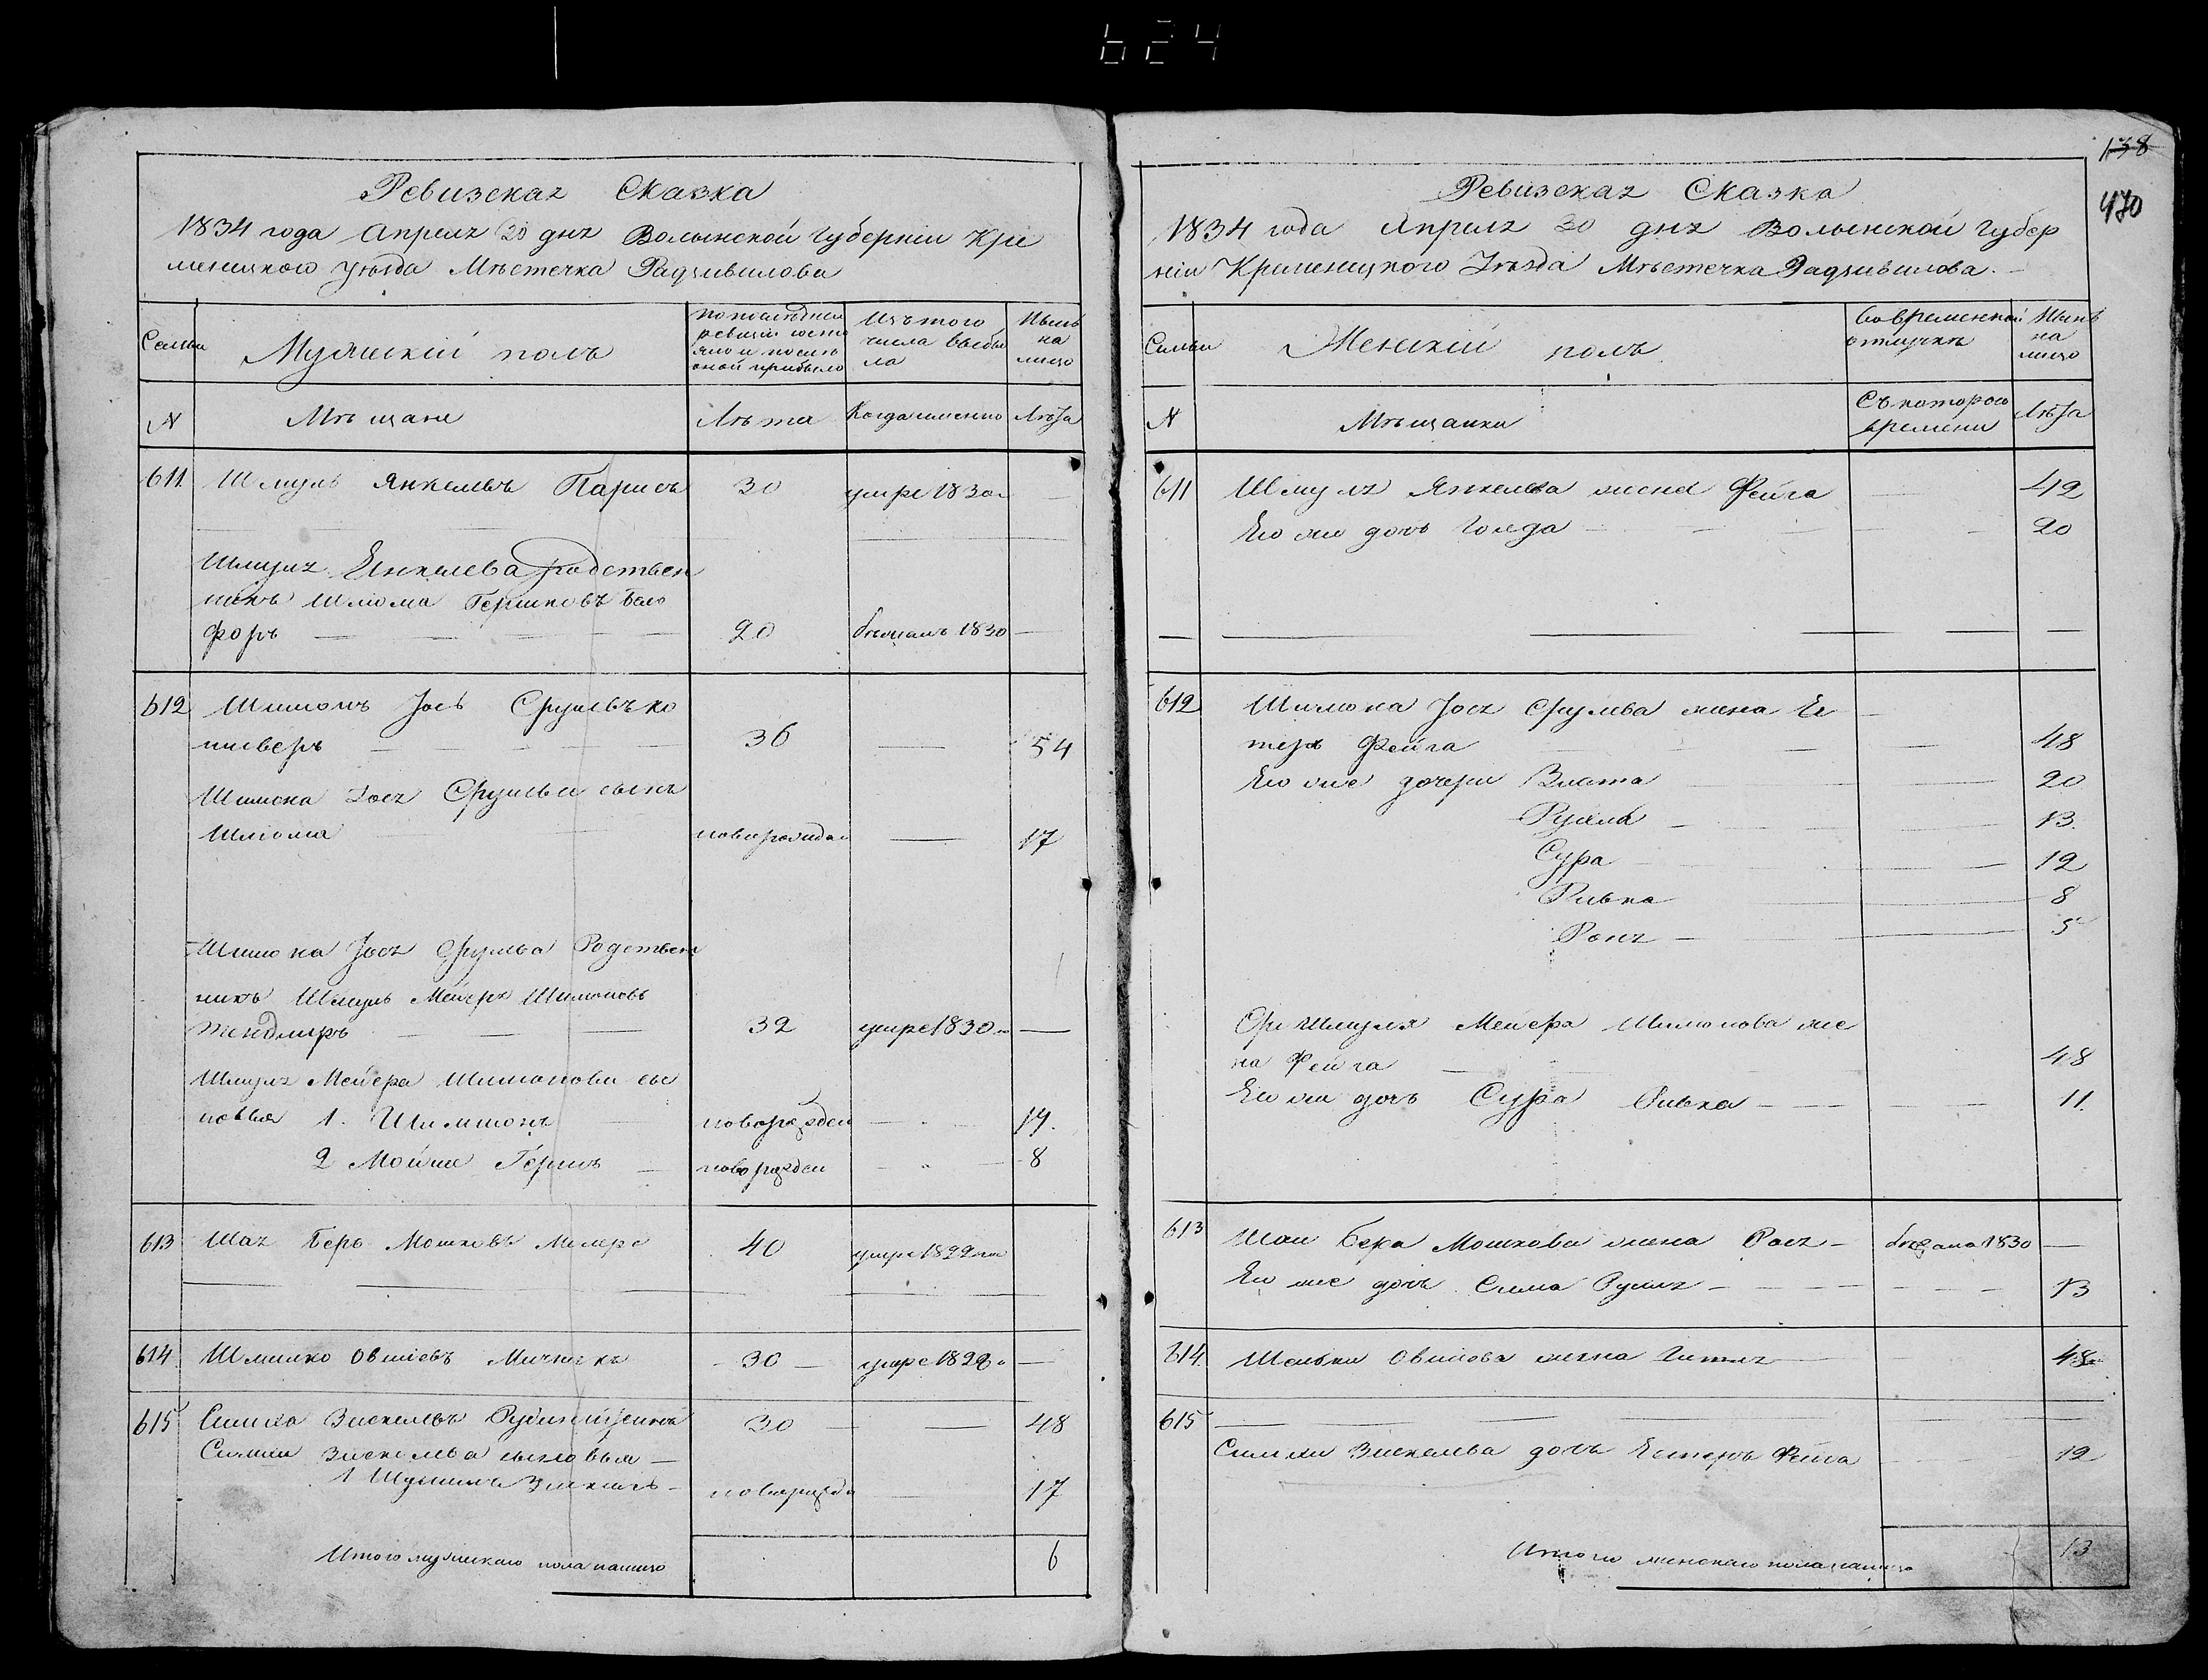 624
138
470
Ревизская Сказка
1834 года Апреля 20 дня Волынской Губерніи Кре
менецкого уезда Мѣстечка Радзивилова
Семьи
Мужескій полъ
По последней ревизіи состо яло и после оной прибыло
Изъ того числа выбы ла
Нынѣ на лицо
N
Мѣщане
Лѣта
Когда именно
Лѣта
611 Шмуль Янкелевъ Парисъ 30 умре 1830 —
Шмуля Енкелева родствен
никъ Шлиома Гершковъ
форъ — 20 бежалъ 1830 —
612 Шимонъ Іось Срулевъ ко
пиверъ — 36 — 54
Шимона Іося Срулева сынъ
Шлиома новорожден — 17
Шимона Іося Срулева Родствен
никъ Шмуль Мейеръ Шимоновъ
Тендлиръ — 32 умре 1830 —
Шмуля Мейера Шимонова сы
новья 1. Шимшонъ новорожден — 17.
2 Мойше Гершъ — новорожден — 8
613 Шая Беръ Мошковъ 40 умре 1822
614 Шмилко Овшіевъ Мичникъ — 30 — умре 1828 —
615 Симха Зискелевъ 30 — 48
Симхи Зискелева сыновья —
1 — новорожд 17
Итого мужескаго пола налицо 6
Ревизская Сказка
1834 года Апреля 20 дня Волынской Губер
ніи Кременецкого Уезда Мѣстечка Радзивилова.
Семьи
Женскій полъ
Во временной отлучкѣ
Нынѣ на лицо
N
Мѣщанки
Съ которого времени
Лѣта
611 Шмуля Янкелева жена Фейга — 42
Его же дочь Голда — 20
612 Шимона Іося Срулева жена Ес
теръ Фейга — 48
Его же дочери Злата — 20
Рухля — 13.
Сура — 12
Ривка 8
Роня — 5
Шмуля Мейера Шимонова же
на Фейга — 48
Его же дочь Сура Ривка — 11.
613 Шаи Бера Мошкова жена Рося — бежала 1830 —
Его же дочь Сима Рухля — 13
614. Шмилки Овшіова жена Гитля — 48
615 —
Симхи Зискелева дочь Естеръ Фейга 12
Итого женскаго пола налицо 13